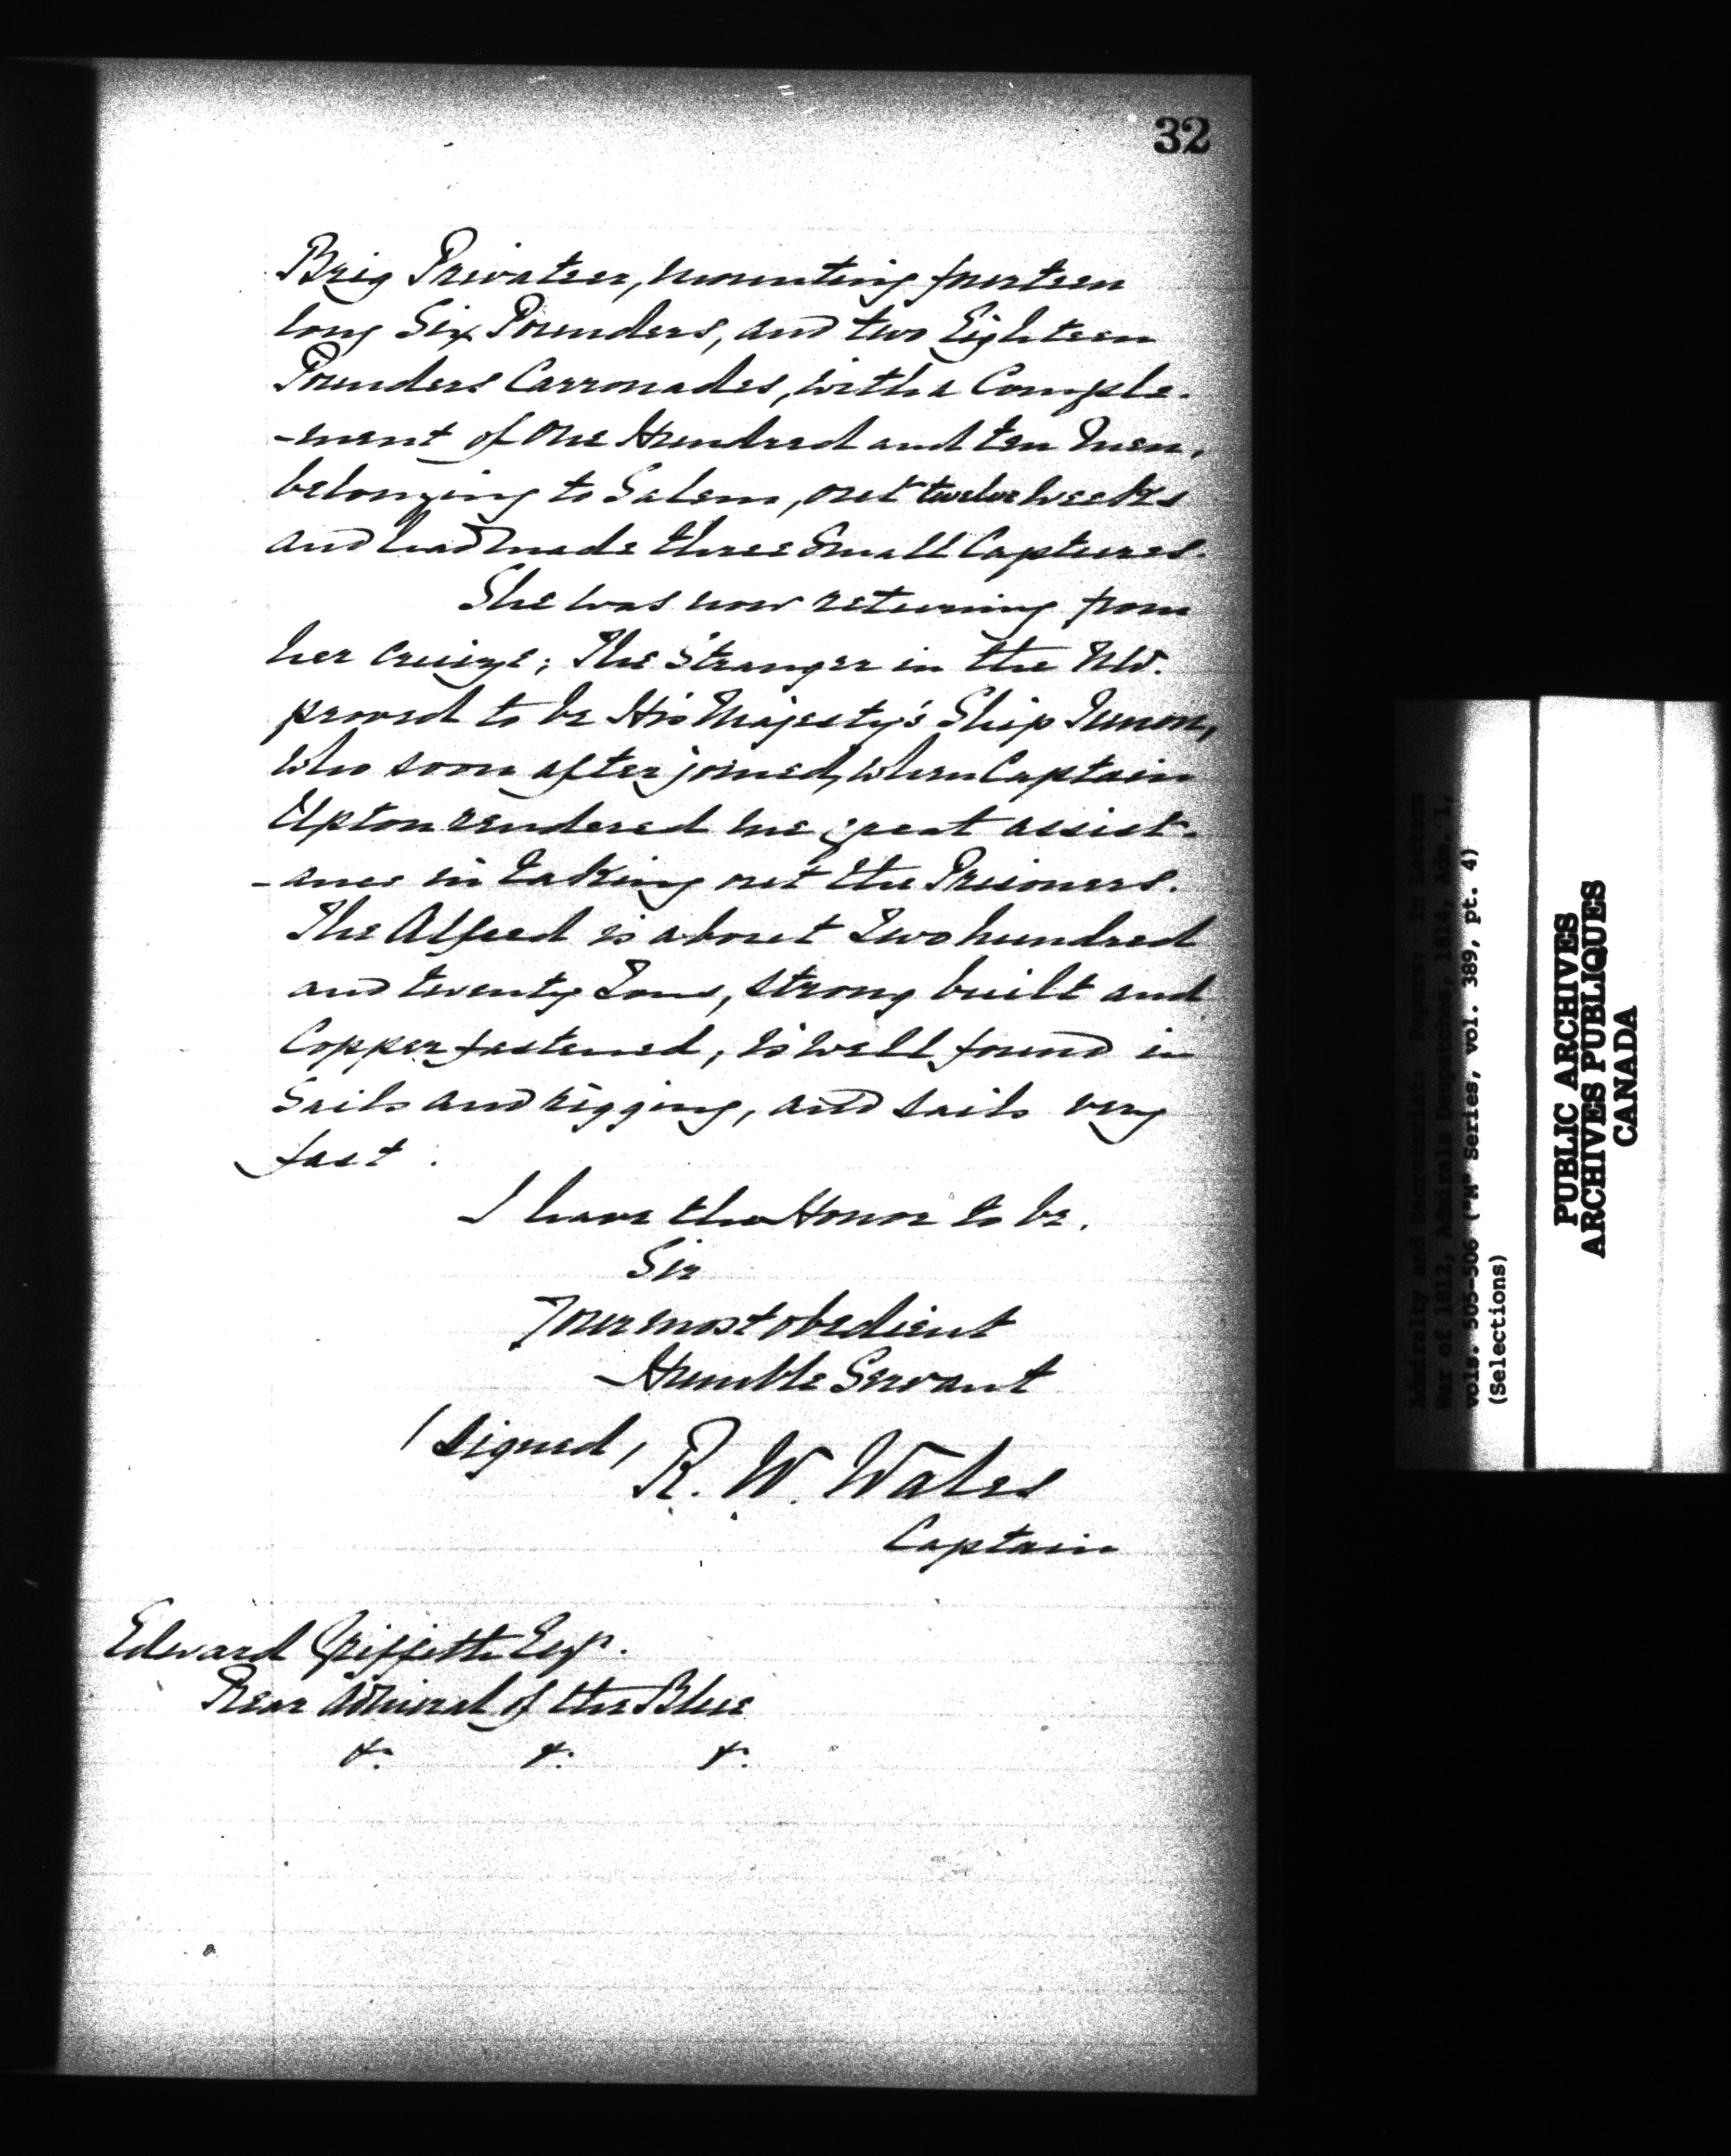 32
Brig Privateer, mounting fourteen
long Six Pounders, and two Eighteen
Pounders Carronades, with a Comple-
-ment of One Hundred and ten Men,
belonging to Salem, out twelve weeks
and had made three Small Captures.
She was now returning from
her cruize; The Stranger in the NW.
proved to be His Majesty's Ship Junon,
who soon after joined, when Captain
Upton rendered me great assist-
-ance in taking out the Prisoners.
The Alfred is about Two hundred
and twenty Tons, strong built and
Copper fastened, is well found in
Sails and rigging, and sails very
fast.
I have the Honor to be.
Sir
Your most obedient
Humble Servant
(Signed) R. W. Wales
Captain
Edward Griffith Esqr.
Rear Admiral of the Blue
&c. &c. &c.
Admiralty and Secretariat: Papers: In Letters
War of 1812, Admirals Despatches, 1814, Adm. 1,
vols. 505-506 ("M" Series, vol. 389, pt. 4)
(Selections)
PUBLIC ARCHIVES
ARCHIVES PUBLIQUES
CANADA